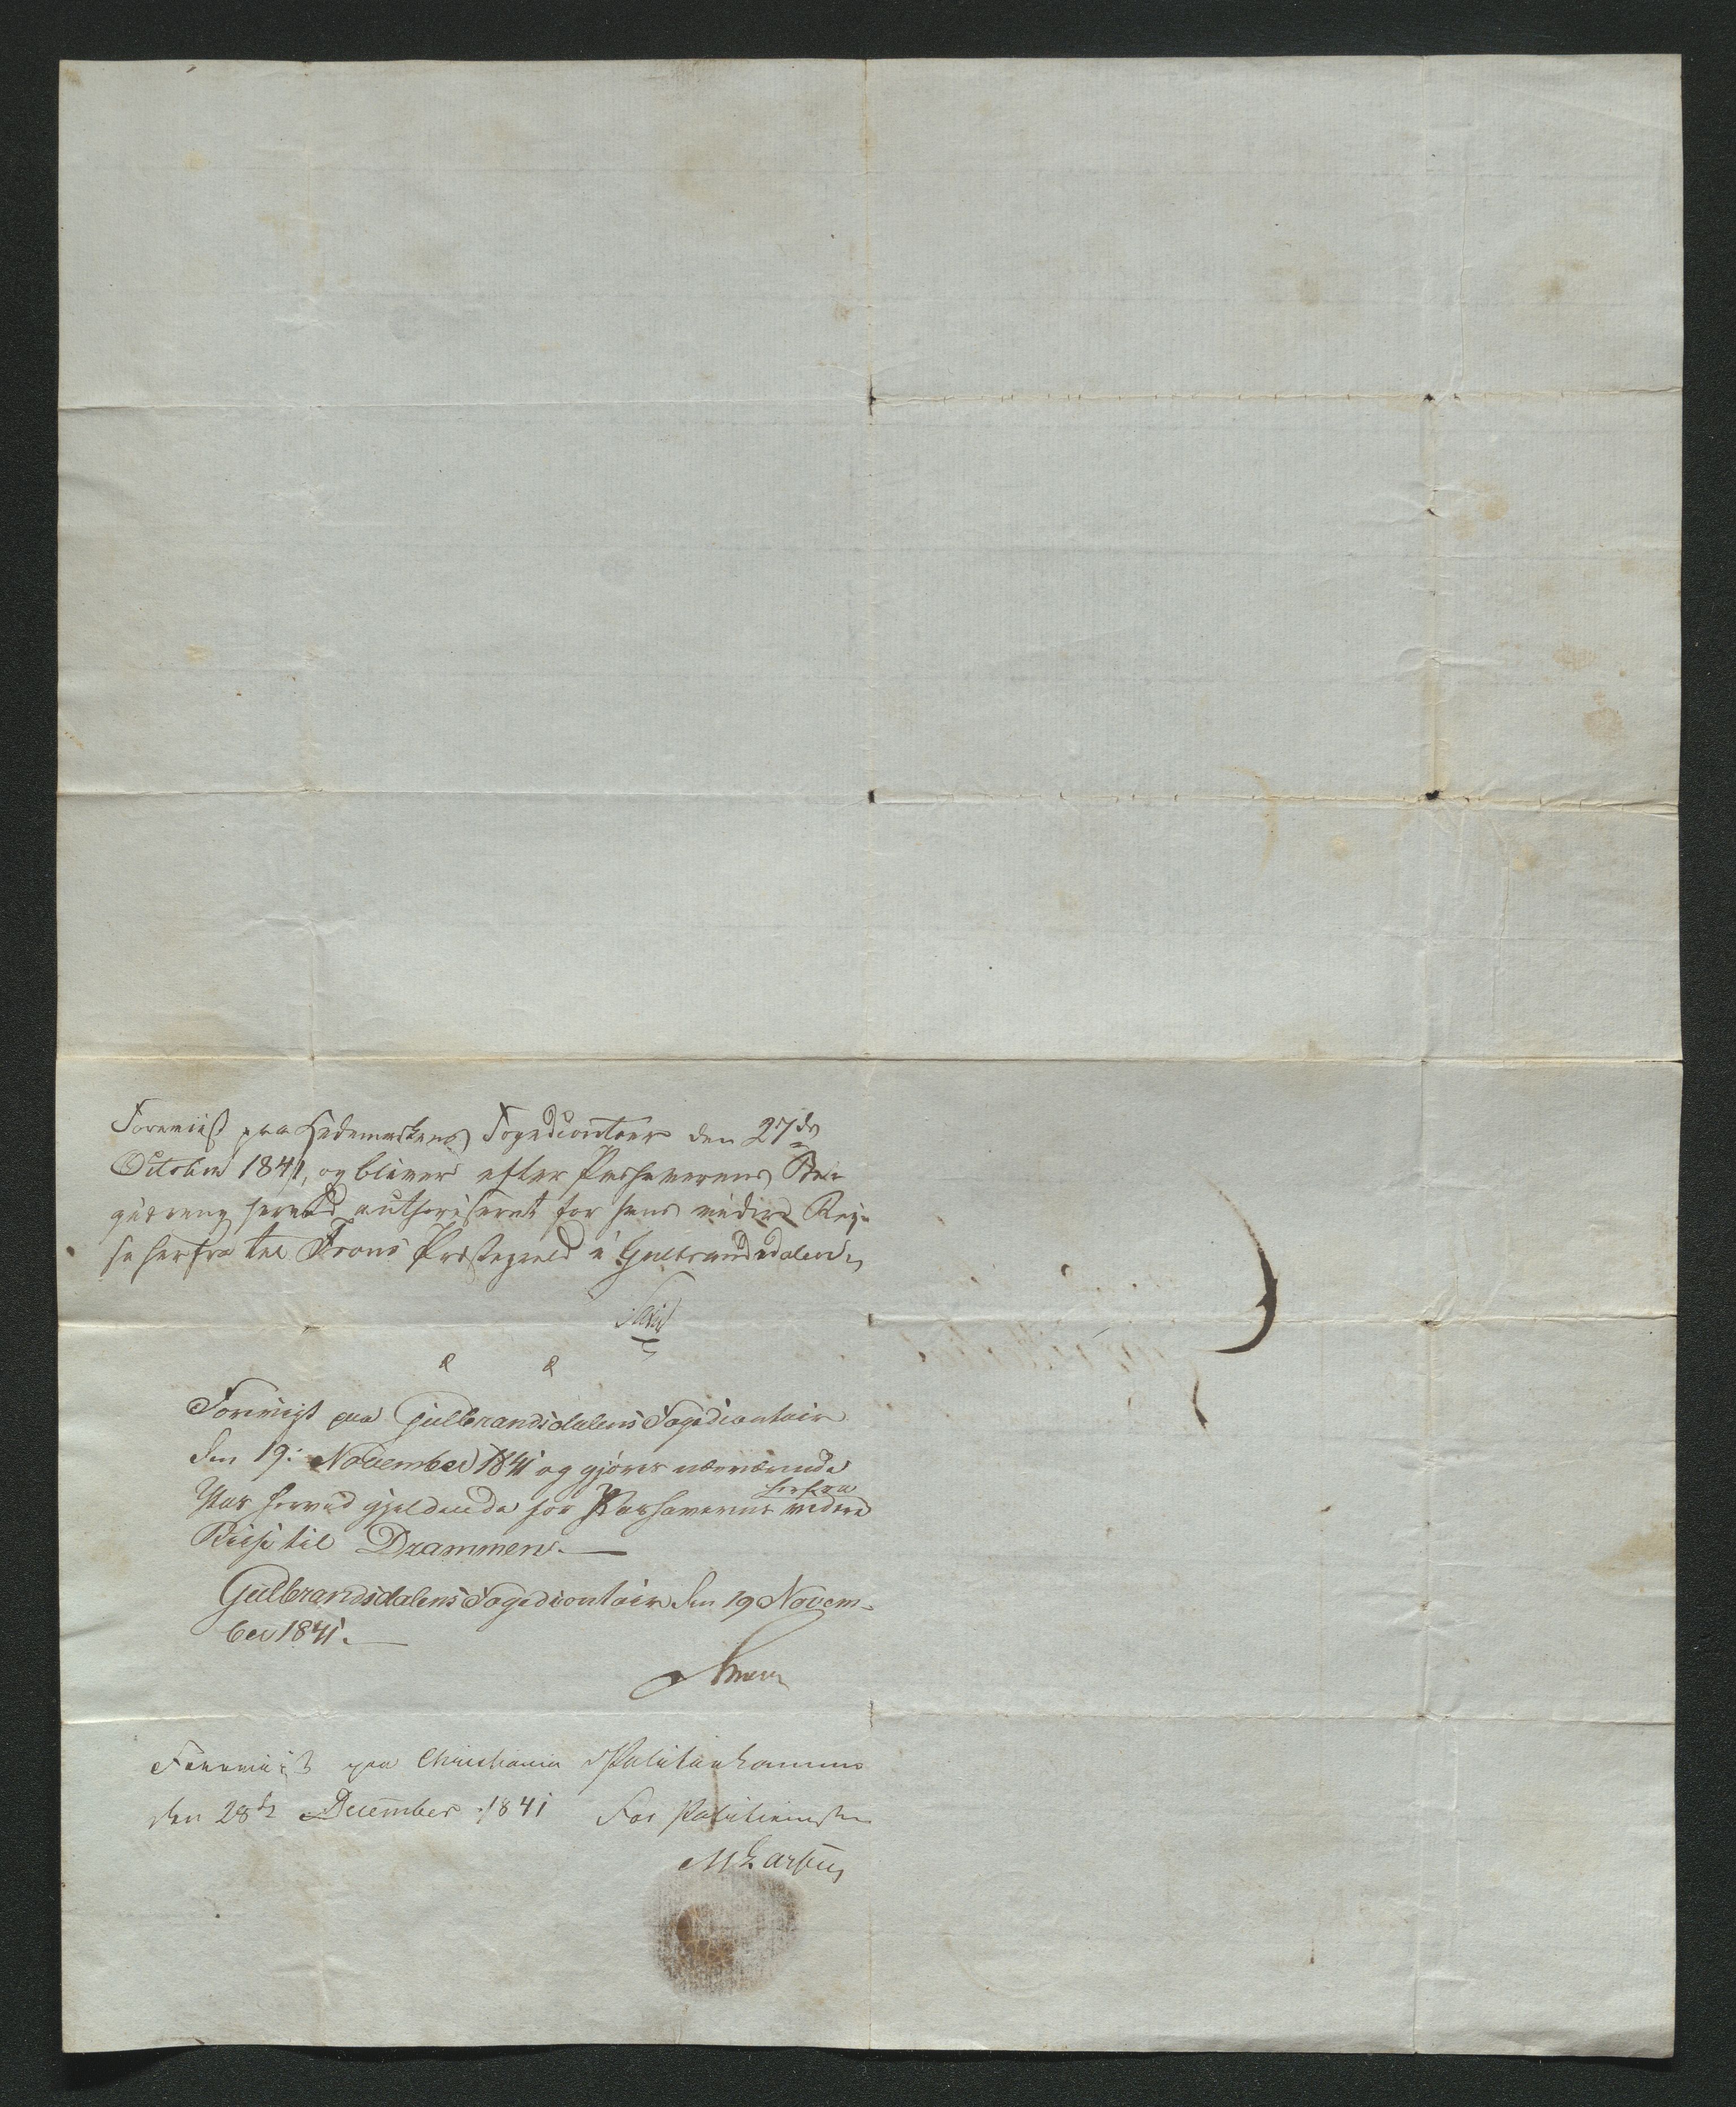 Foreviist paa Hedemarkens Fogedcontoir den 27de
October 1841, og bliver efter Pashaverens Be-
gjæring herved authoriseret for hans videre Rej-
se herfra til Frons Præstegield i Gulbrandsdalen
Foreviist paa Gulbrandsdalens Fogedcontoir
den 19: November 1841 og gjøres nærværende
herfra
Pas herved gjeldende for Pashaverens videre
Reise til Drammen.—
Gulbrandsdalens Fogedcontoir den 19 Novem-
ber 1841.—
Foreviist paa Christiania Politiekammer
den 28de December 1841 For Politiemesteren
M Larsen